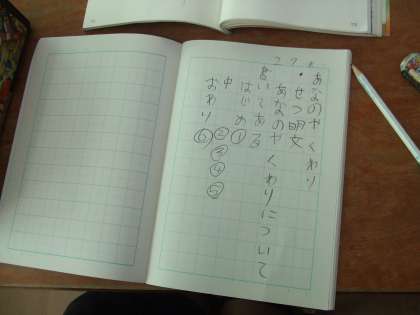 あなのやくわり
・せつ明文
あなのやくわりについて
書いてある
はじめ①
中②③④⑤
おわり⑥